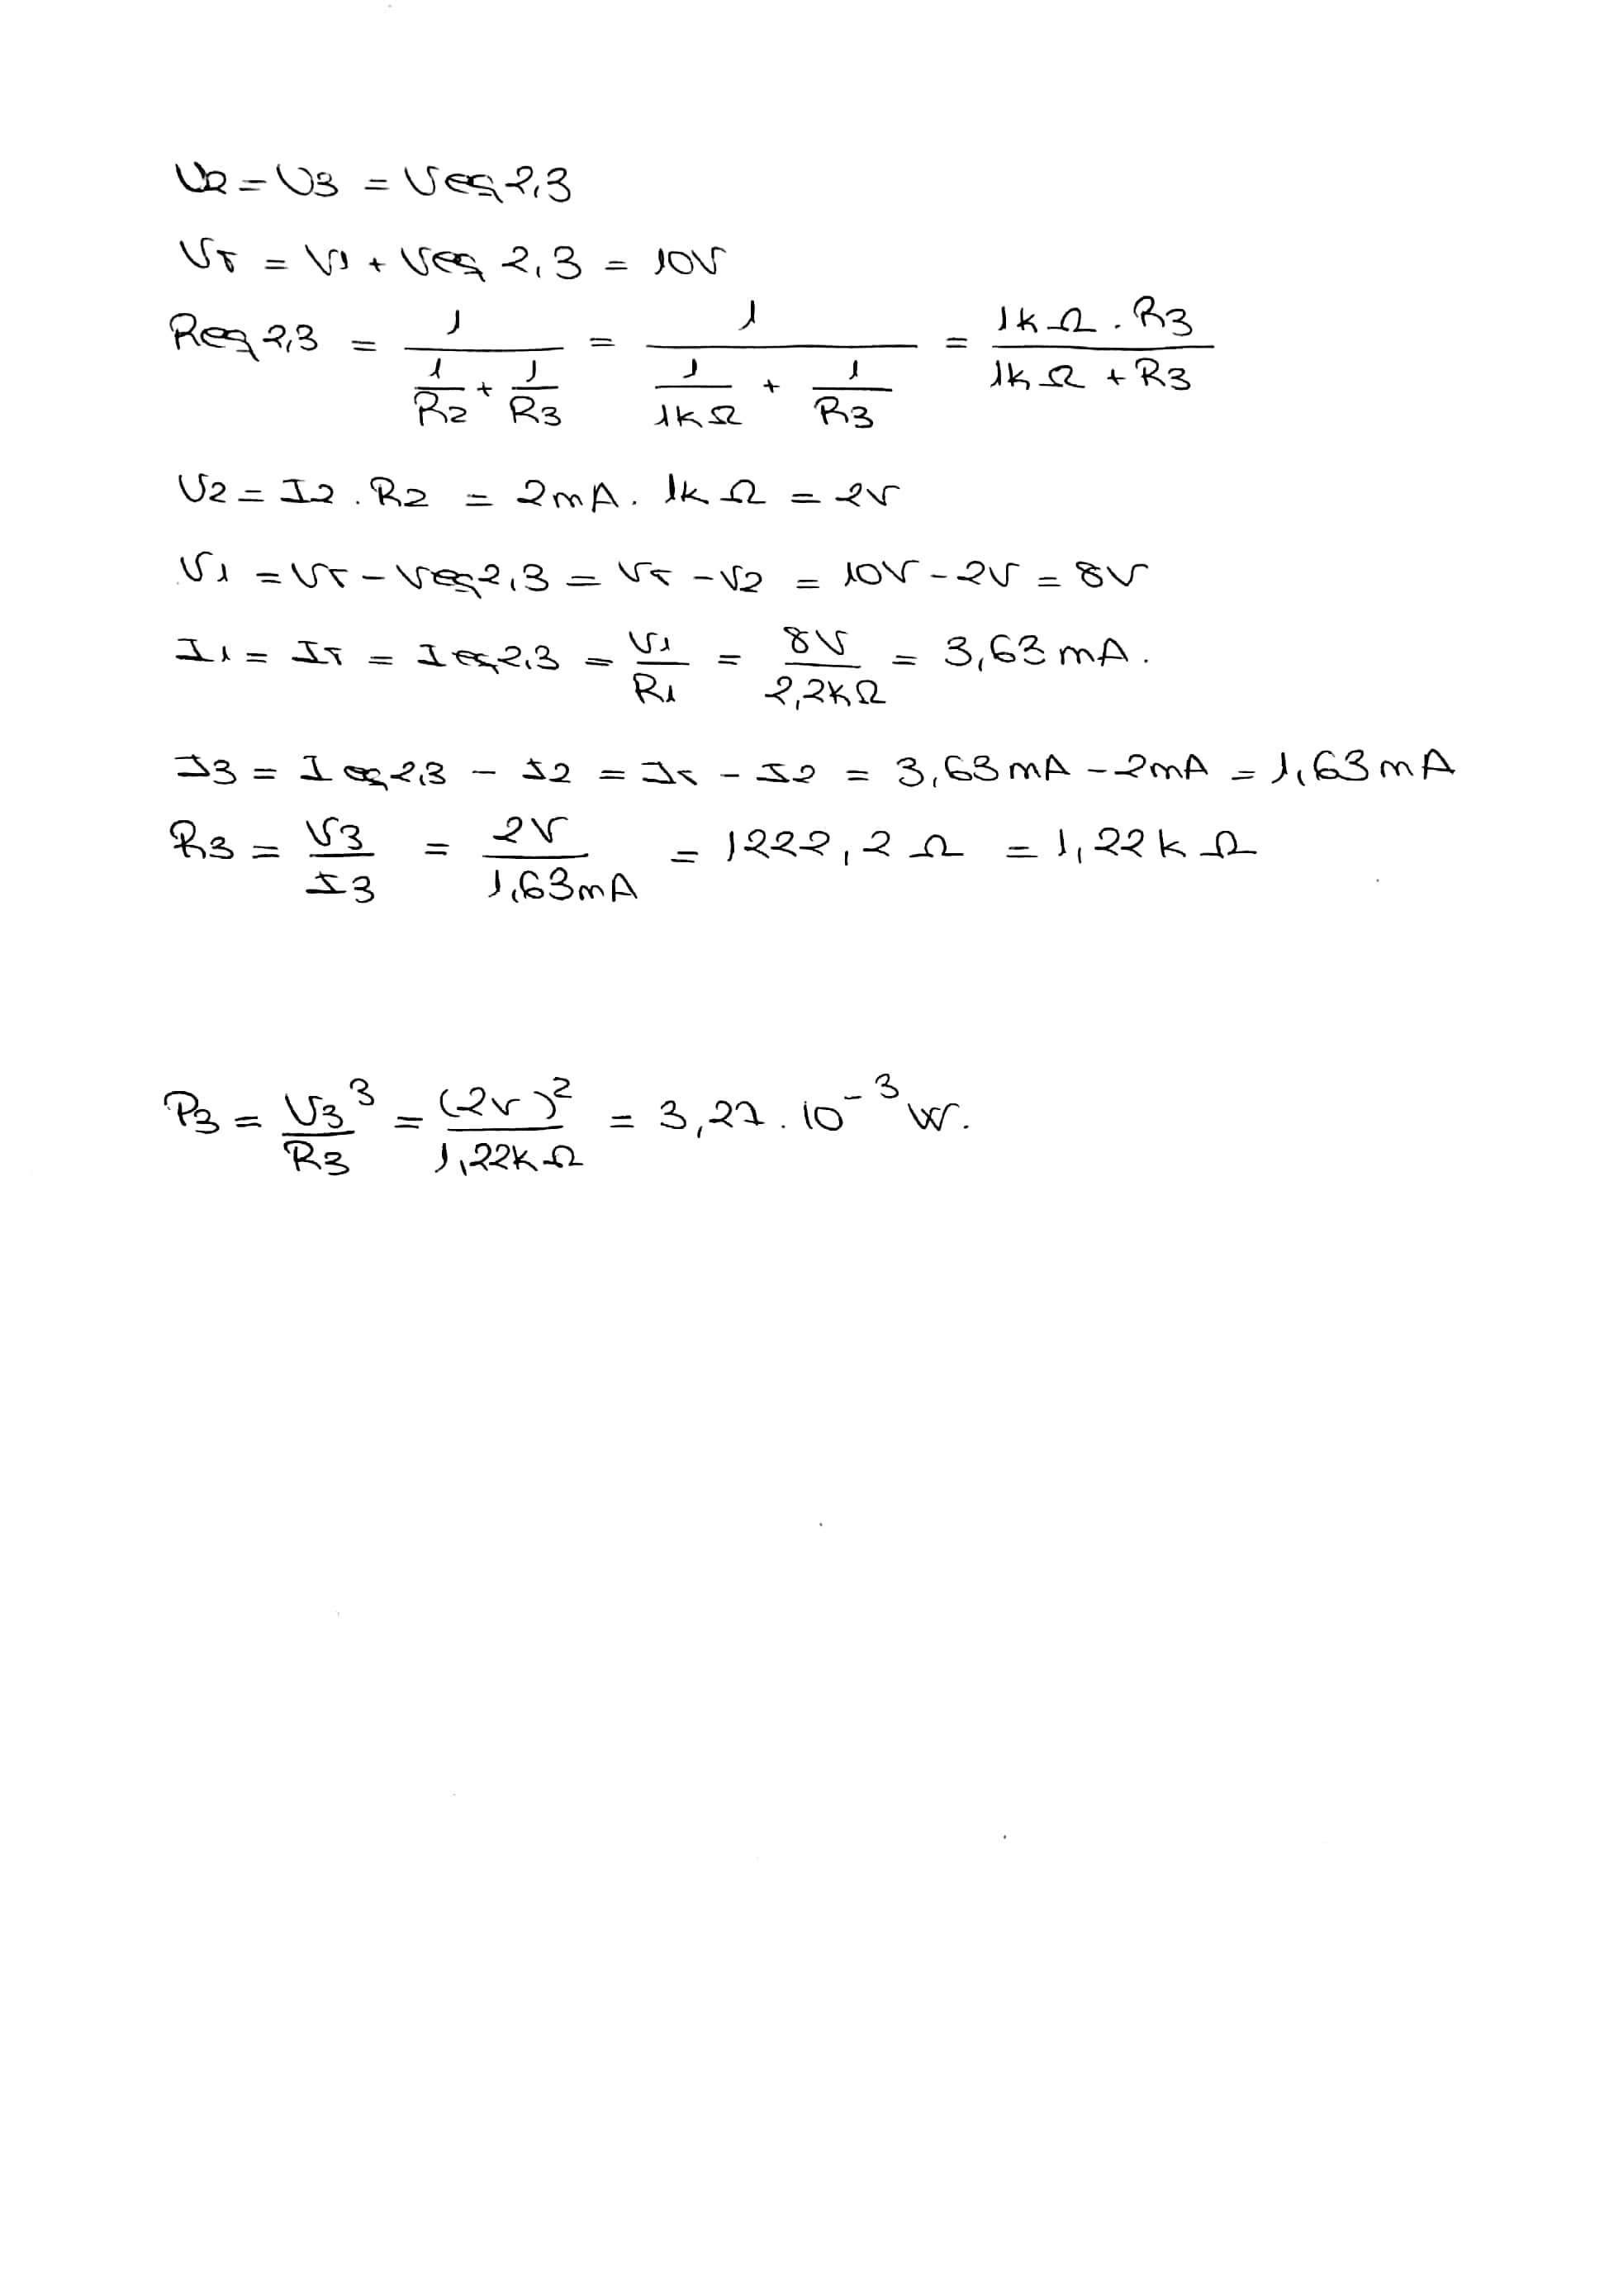 V2 = V3 = Veq 2,3
VT = V1 + Veq 2,3 = 10V
Req 2,3 = 1 / (1/R2 + 1/R3) = 1 / (1/1kΩ + 1/R3) = 1kΩ . R3 / 1kΩ + R3
V2 = I2 . R2 = 2mA . 1kΩ = 2V
V1 = VT - Veq 2,3 = VT - V2 = 10V - 2V = 8V
I1 = IT = Ieq 2,3 = V1 / R1 = 8V / 2,2kΩ = 3,63 mA.
I3 = Ieq 2,3 - I2 = IT - I2 = 3,63 mA - 2mA = 1,63 mA
R3 = V3 / I3 = 2V / 1,63mA = 1222,2 Ω = 1,22 kΩ
P3 = V3³ / R3 = (2V)² / 1,22kΩ = 3,27 . 10⁻³ W.